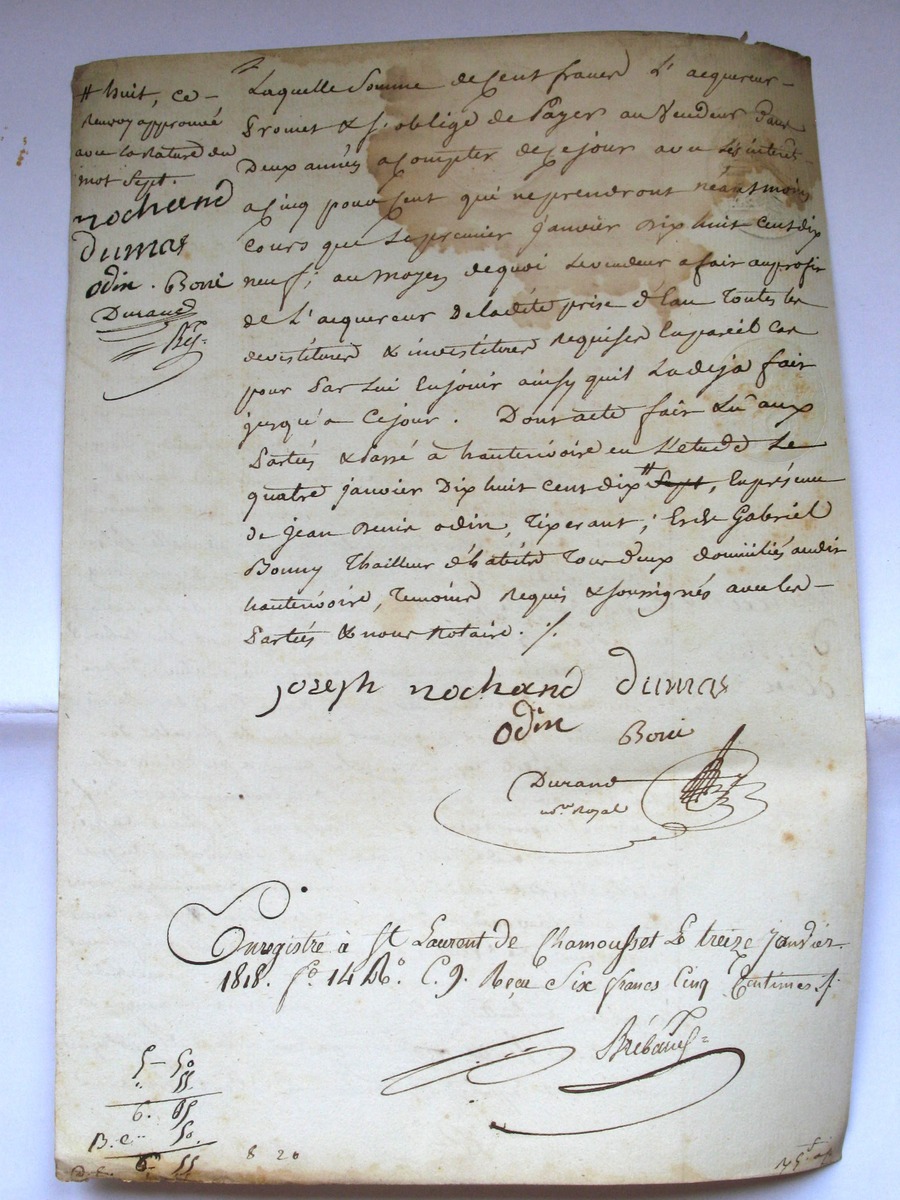 # huit, ce
Renvoy approuvé
avec la Rature du
mot Sept.
nochand
Dumas
odin. Boni
Durand
Laquelle Somme de Cent francs L'acquereur
Promet & s'oblige de Payer au Vendeur dans
Deux années a Compter de ce jour avec Les interets
a Cinq pour Cent qui ne prendront néantmoins
Cours que Le premier janvier Dix huit Cent dix
neuf; au moyen de quoi Le vendeur a fait au profit
de L'acquereur De ladite prise d'Eau Toutes les
devestitures & investitures Requises En pareil Cas
pour Par Lui En jouir ainsy qu'il La deja fait
jusqu'a Ce jour. Dont acte fait Lu aux
Parties & Passé à hauterivoire en L'etude Le
quatre janvier Dix huit Cent dix # Sept, En présence
de jean Denis odin, Tixerant, Gabriel
Bonny Thailleur d'habits Tous deux domiciliés audit
hauterivoire, Temoins Requis & soussignés avec les
Parties & nous Notaire. ./.
joseph nochand Dumas
Odin Boni
Durand
nore Royal
Enregistré à St Laurent de Chamousset Le treize Janvier
1818. fo 14 Ro. C. 9. Reçu Six francs Cinq Centimes
5 - 50
55
6. 05
50.
6 55
8 20